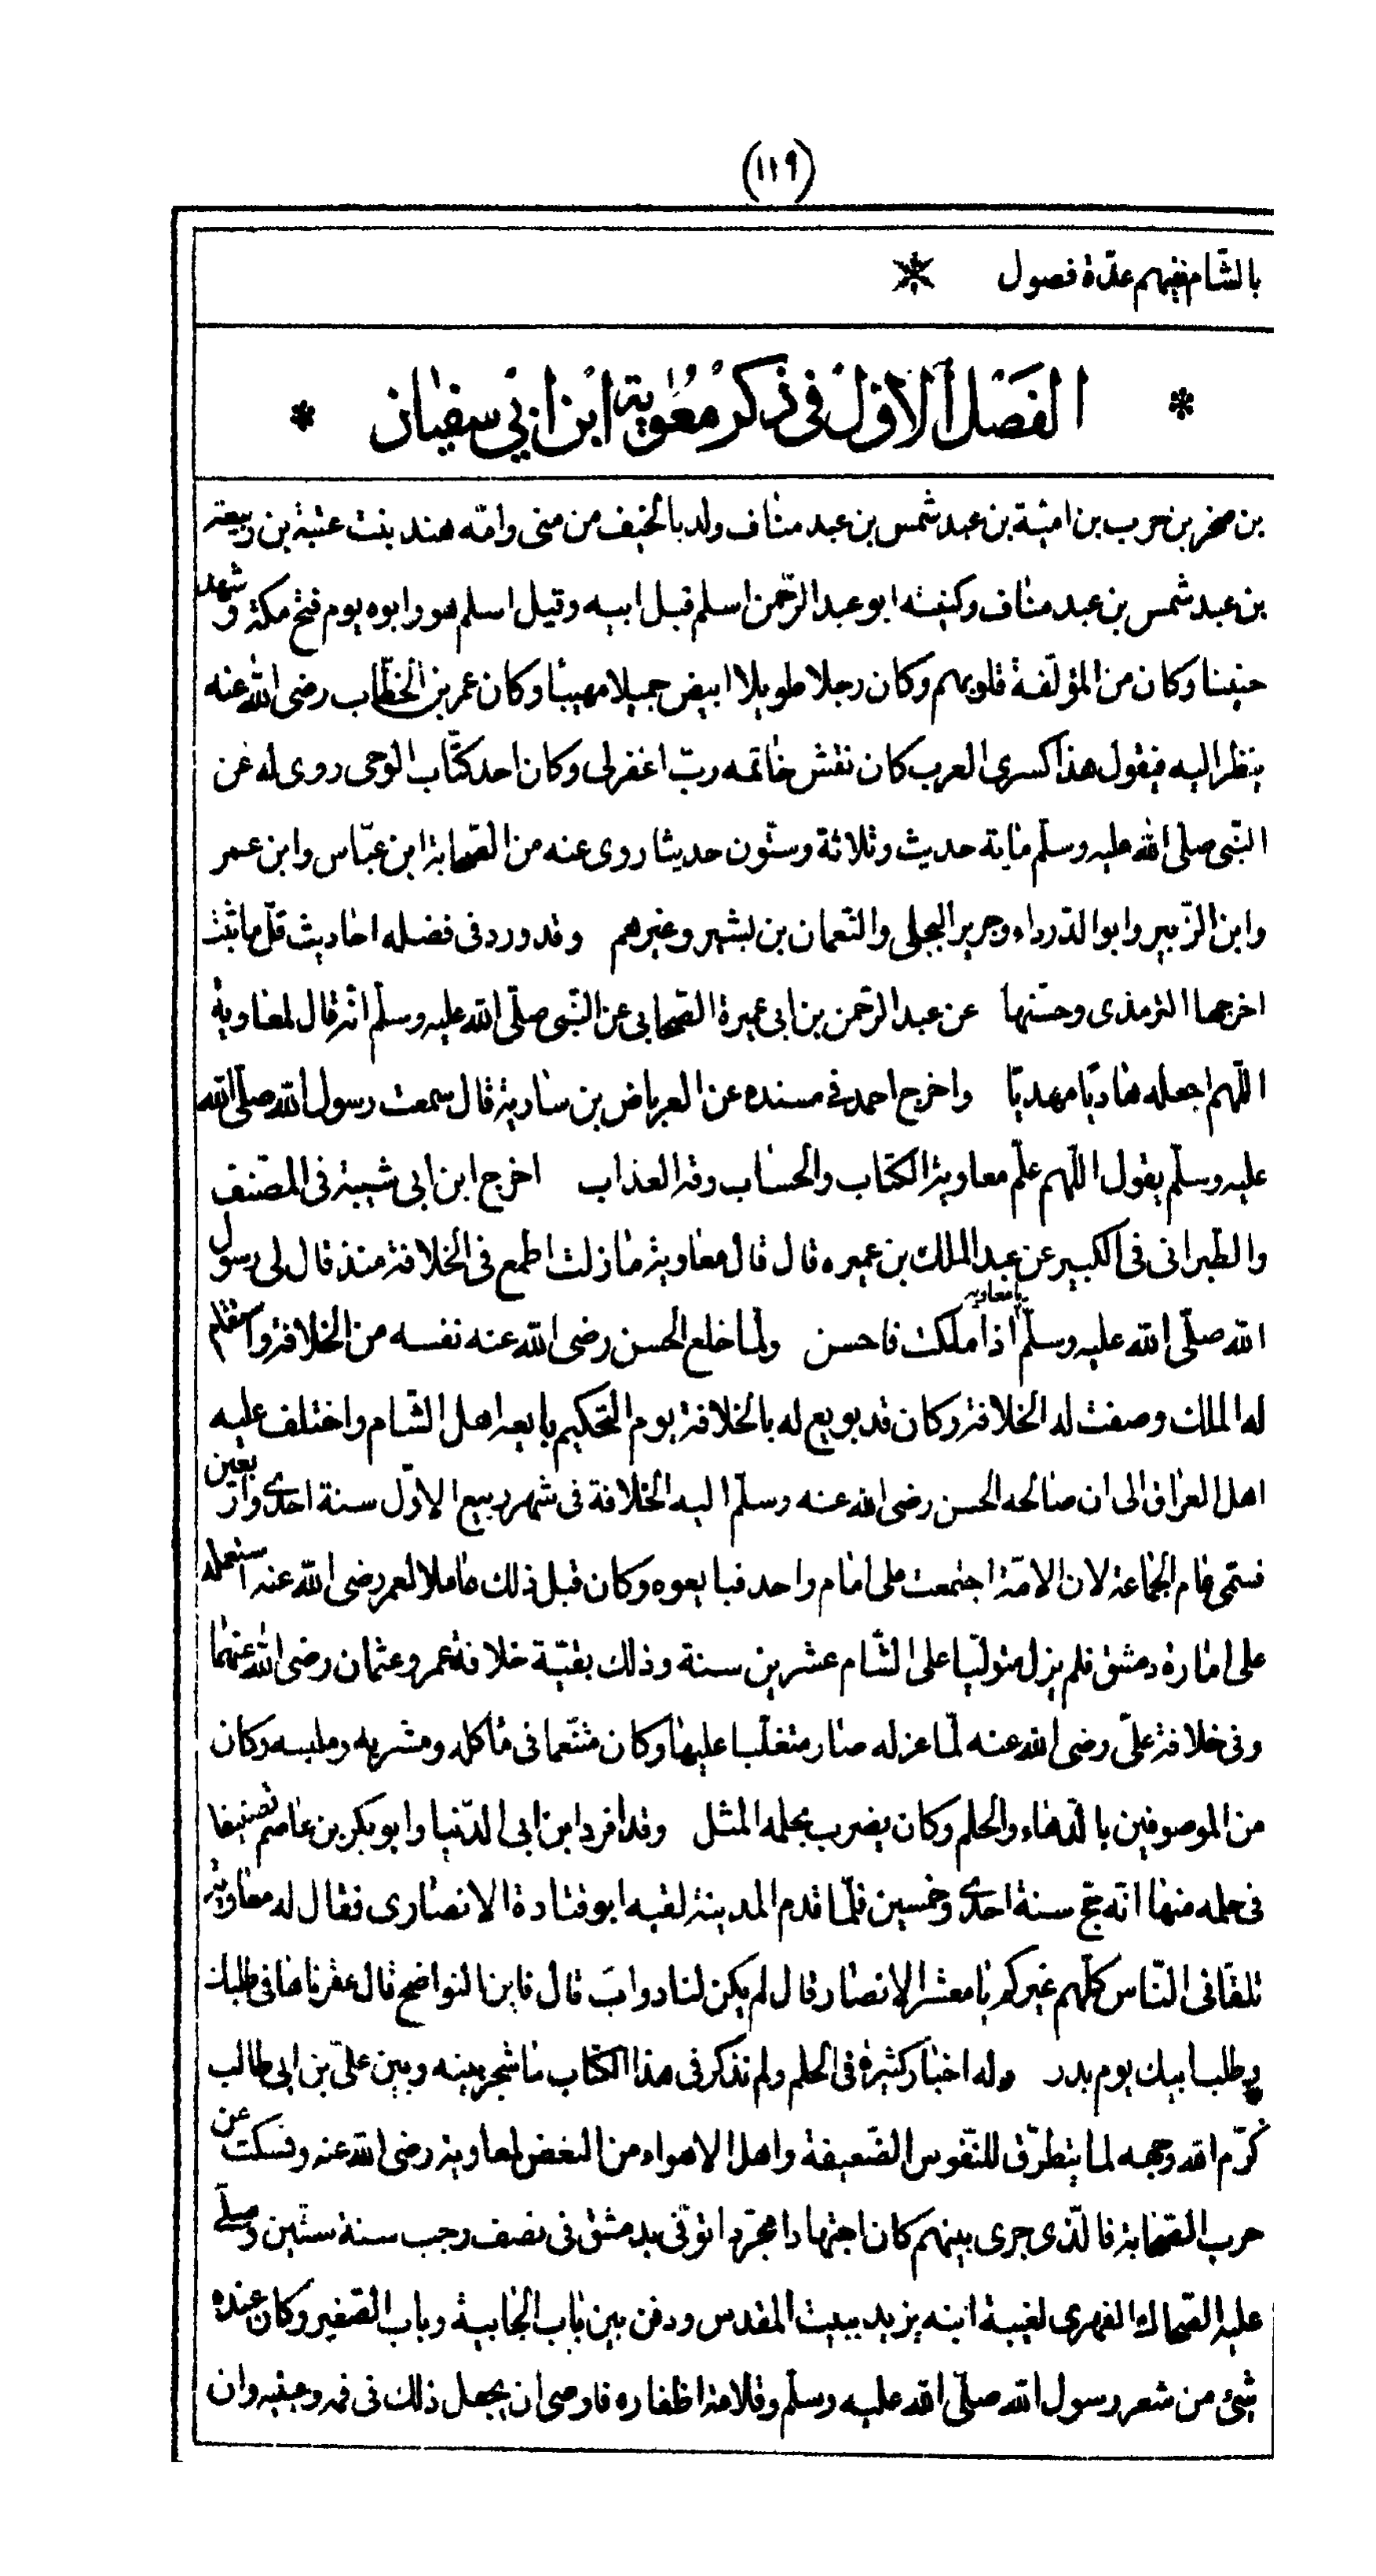 (١١٩)
بالشّام ففيهم عدّة فصول *
* الفَصْل الأوّل في ذكر معٰوية ابن ابي سفيان *
بن صخر بن حرب بن اميّة بن عبد شمس بن عبد مناف ولد بالخيف من منى وامّه هند بنت عتبة بن ربيعة
بن عبد شمس بن عبد مناف وكنيته ابو عبد الرّحمن اسلم قبل ابيه وقيل اسلم هو وابوه يوم فتح مكة وشهد
حنينا وكان من المؤلّفة قلوبهم وكان رجلا طويلا ابيض جميلا مهيبا وكان عمر بن الخطّاب رضى الله عنه
ينظر اليه فيقول هذا كسرى العرب كان نقش خاتمه ربّ اغفر لى وكان احد كتّاب الوحى روى له عن
النّبى صلّى الله عليه وسلّم ماية حديث وثلاثة وستّون حديثا روى عنه من الصّحابة ابن عبّاس وابن عمر
وابن الزّبير وابو الدّرداء وجرير البجلى والنّعمان بن بشير وغيرهم وقد ورد فى فضله احاديث قلّ ما ثبت
اخرجها الترمذى وحسّنها عن عبد الرّحمن بن ابى عميرة الصّحابى عن النّبى صلّى الله عليه وسلّم انّه قال لمعاوية
اللّهم اجعله هاديًا مهديًا واخرج احمد فى مسنده عن العرباض بن سارية قال سمعت رسول الله صلّى الله
عليه وسلّم يقول اللّهم علّم معاوية الكتاب والحساب وقه العذاب اخرج ابن ابى شيبة فى المصنف
والطبرانى فى الكبير عن عبد الملك بن عميره قال قال معاوية ما زلت اطمع فى الخلافة منذ قال لى رسول
الله صلّى الله عليه وسلّم يا معاوية اذا ملكت فاحسن ولمّا خلع الحسن رضى الله عنه نفسه من الخلافة واستقام
له الملك وصفت له الخلافة وكان قد بويع له بالخلافة يوم التحكيم بايعه اهل الشّام واختلف عليه
اهل العراق الى ان صالحه الحسن رضى الله عنه وسلّم اليه الخلافة فى شهر ربيع الاوّل سنة احدى واربعين
فسمّى عام الجماعة لان الامّة اجتمعت على امام واحد فبايعوه وكان قبل ذلك عاملا لعمر رضى الله عنه استعمله
على امارة دمشق فلم يزل متولّيا على الشّام عشرين سنة وذلك بقيّة خلافة عمر وعثمان رضى الله عنهما
وفى خلافة علىّ رضى الله عنه لمّا عزله صار متغلّبا عليها وكان متنّعما فى مأكله ومشربه وملبسه وكان
من الموصوفين بالدّهاء والحلم وكان يضرب بحلمه المثل وقد افرد ابن ابى الدّنيا وابو بكر بن عاصم تصنيفا
فى حلمه منها انّه حج سنة احدى وخمسين فلمّا قدم المدينة لقيه ابو قتادة الانصارى فقال له معاوية
تلقّانى النّاس كلّهم غيركم يا معشر الانصار قال لم يكن لنا دواب قال فاين النواضح قال عقرناها فى طلبك
وطلب ابيك يوم بدر وله اخبار كثيرة فى الحلم ولم نذكر فى هذا الكتاب ما شجر بينه وبين علىّ بن ابى طالب
كرّم الله وجهه لما يتطرّق للنّفوس الضّعيفة واهل الاهواء من البغض لمعاوية رضى الله عنه ونسكت عن
حرب الصّحابة فالّذى جرى بينهم كان اجتهادا مجرّدا توفّى بدمشق فى نصف رجب سنة ستّين وصلّى
عليه الضّحاك الفهرى لغيبة ابنه يزيد ببيت المقدس ودفن بين باب الجابية وباب الصّغير وكان عنده
شئ من شعر رسول الله صلّى الله عليه وسلّم وقلامة اظفاره فاوصى ان يجعل ذلك فى فمه وعينيه وان